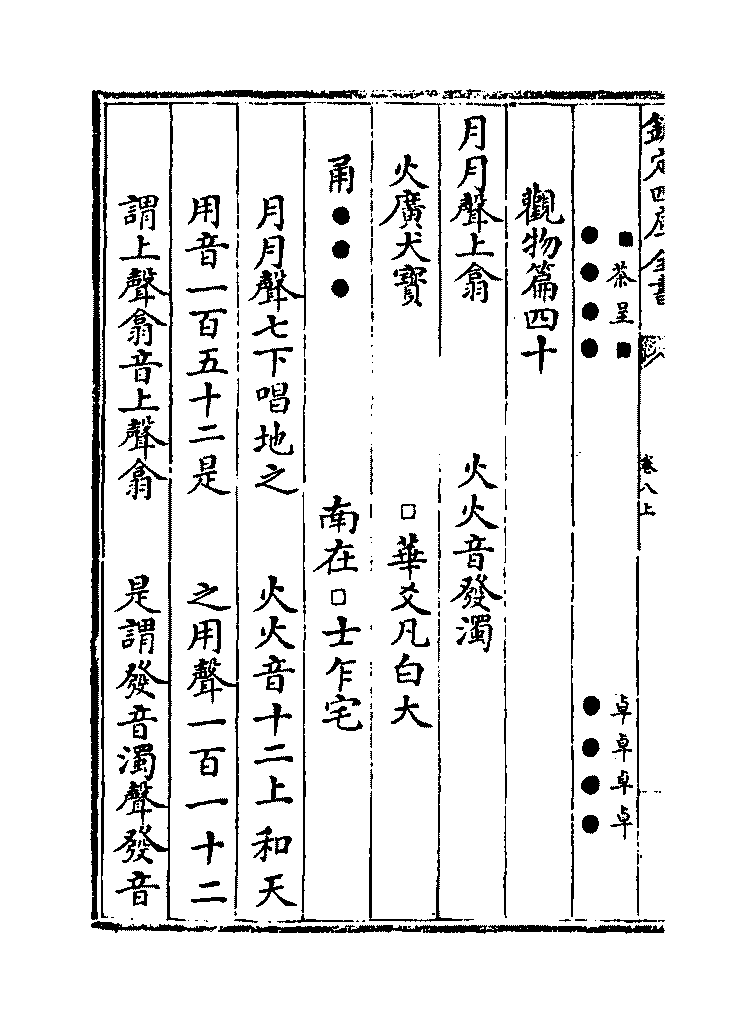 欽定四庫全書
卷八上
■茶呈■
卓卓卓卓
●●●●
●●●●
觀物篇四十
月月聲上翕
火火音發濁
火廣犬寳
□華爻凡白大
甬●●●
南在□士乍宅
月月聲七下唱地之
火火音十二上和天
用音一百五十二是
之用聲一百一十二
謂上聲翕音上聲翕
是謂發音濁聲發音